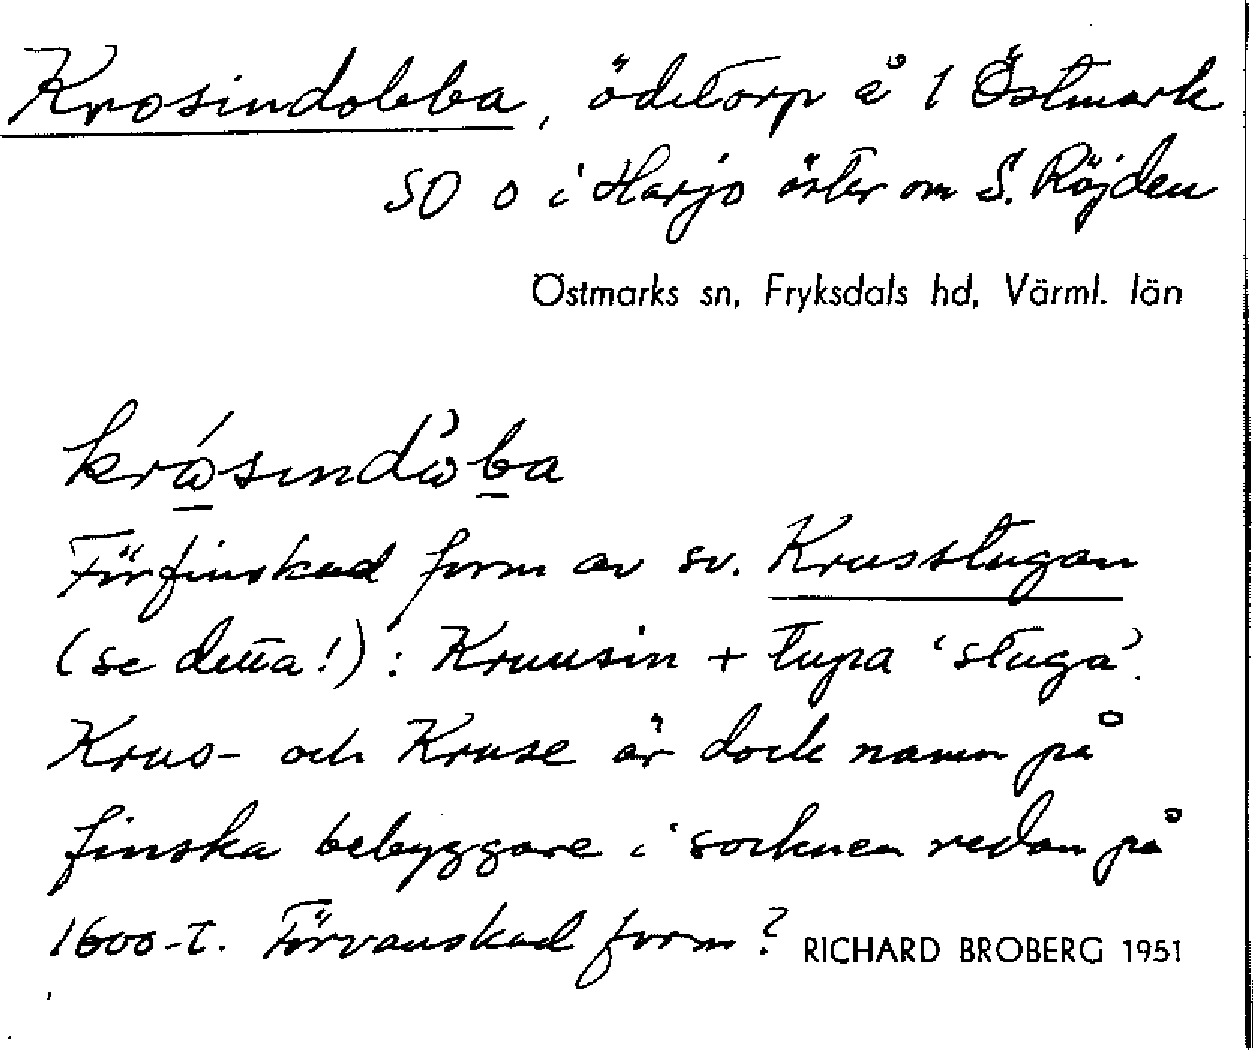 Krosindobba, ödetorp å 1 Östmark
SO o i Harjo öster om S. Röjden
Östmarks sn, Fryksdals hd, Värml. län
krɷ́sindɷ̀ba
Förfinskad form av sv. Krusstugan
(se detta!): Kruusin + tupa 'stuga'.
Krus- och Kruse är dock namn på
finska bebyggare i socknen redan på
1600-t. Förvanskad form?
RICHARD BROBERG 1951